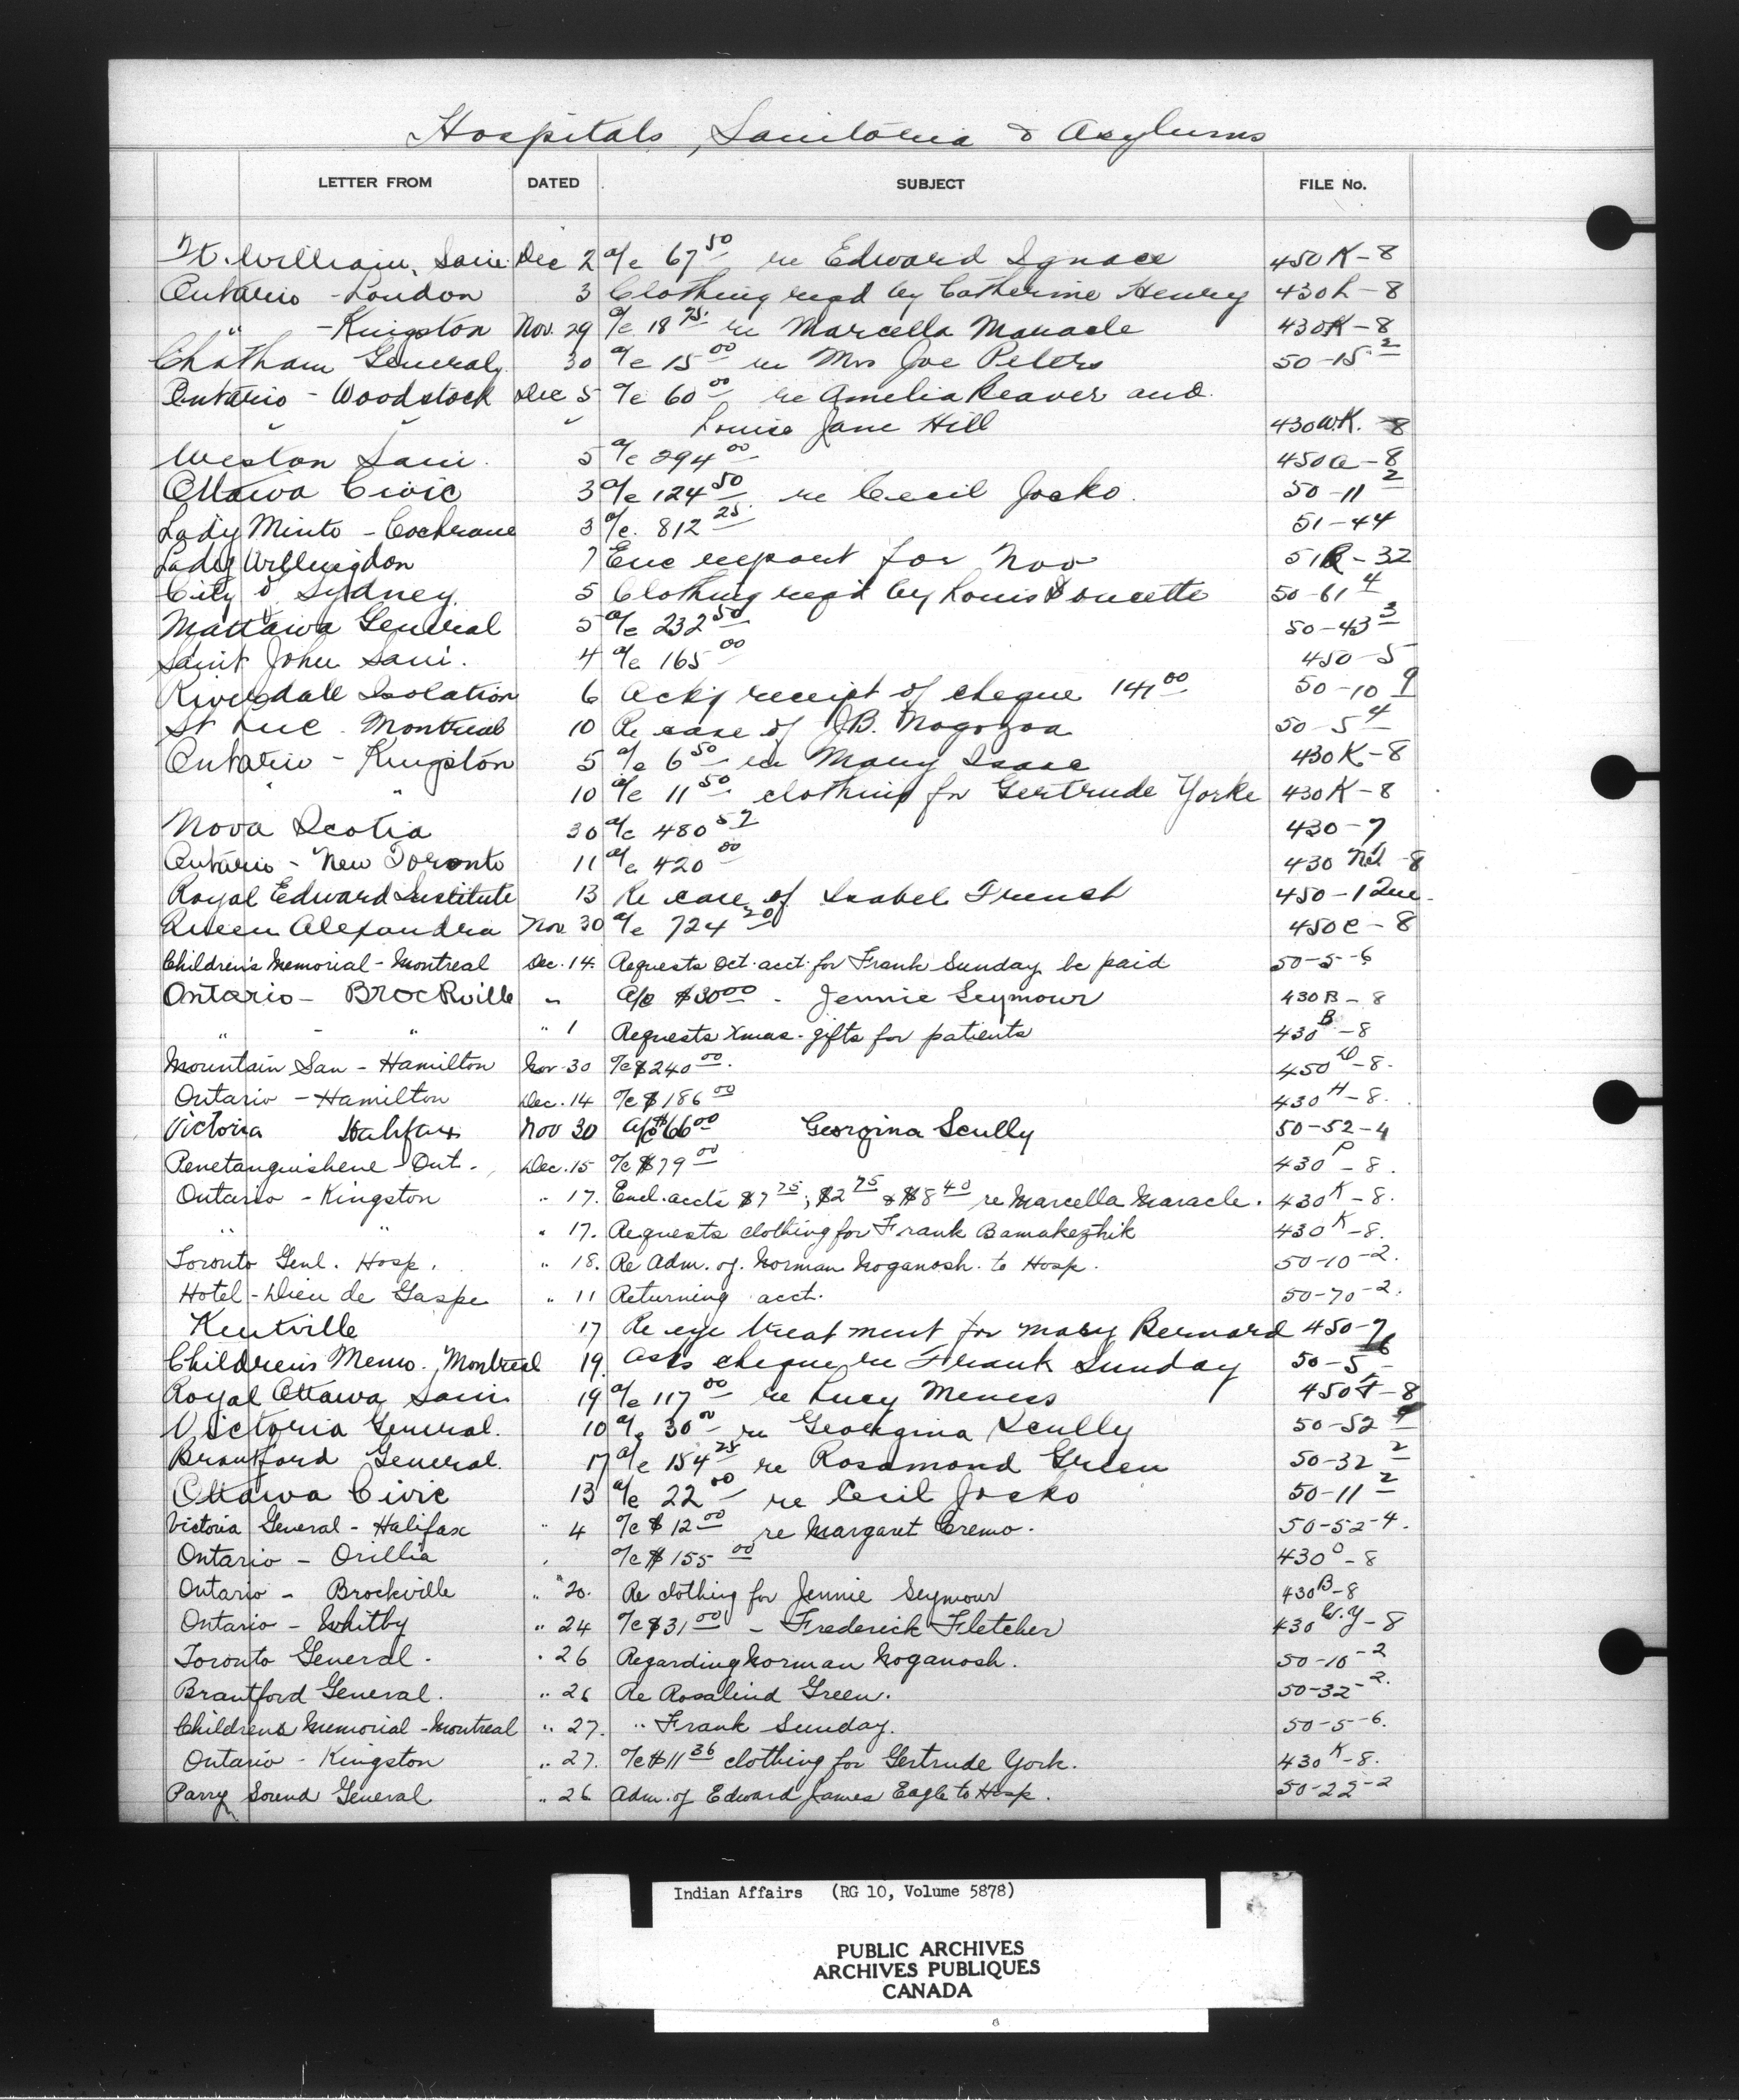 Hospitals, Sanitoria & Asylums
LETTER FROM DATED SUBJECT FILE No.
Ft. William, Sani Dec 2 a/c 67 50 re Edward Ignace 450K-8
Ontario - London 3 Clothing reqd by Catherine Henry 430L-8
" - Kingston Nov. 29 a/c 18 75 re Marcella Maracle 430K-8
Chatham General 30 a/c 15 00 re Mrs Joe Peters 50-15-2
Ontario - Woodstock Dec 5 a/c 60 00 re Amelia Beaver and
" " " Louise Jane Hill 430W.K. 8
Weston Sani. 5 a/c 294 00 450a-8
Ottawa Civic 3 a/c 124 50 re Cecil Jocko. 50-11 2
Lady Minto - Cochrane 3 a/c. 812 25 51-44
Lady Willingdon 7 Enc report for Nov 51R-32
City of Sydney. 5 Clothing reqd by Louis Doucette 50-61 4
Mattawa General 5 a/c 232 50 50-43 3
Saint John Sani. 4 a/c 165 00 450-5
Riverdale Isolation 6 Ackg receipt of cheque 141 00 50-10 9
St Luc. Montreal 10 Re case of J.B. 50-5 4
Ontario - Kingston 5 a/c 6 50 re Mary Isaac 430K-8
" " 10 a/c 11 50 clothing for Gertrude Yorke 430K-8
Nova Scotia 30 a/c 480 57 430-7
Ontario - New Toronto 11 a/c 420 00 430 -8
Royal Edward Institute 13 Re case of Isabel French 450-1 Que.
Queen Alexandra Nov. 30 a/c 724 20 450C-8
Children's Memorial - Montreal Dec. 14. Requests Oct. acct. for Frank Sunday be paid 50-5-6
Ontario - Brockville " a/c $30 00 - Jennie Seymour 430B-8
" - " " 1 Requests Xmas. gifts for patients 430 B-8
Mountain San - Hamilton Nov-30 a/c $240 00. 450 -8.
Ontario - Hamilton Dec. 14 a/c $186 00 430 H-8.
Victoria Halifax Nov 30 a/c $66 00 Georgina Scully 50-52-4
Penetanguishene - Ont. Dec. 15 a/c $79 00 430 P-8.
Ontario - Kingston " 17. Encl. accts $7 75, $2 75 & $8 40 re Marcella Maracle. 430 K-8.
" " " 17. Requests clothing for Frank Bamakezhik 430 K-8.
Toronto Genl. Hosp. " 18. Re Adm. of. Norman Noganosh. to Hosp. 50-10-2.
Hotel-Dieu de Gaspe " 11 Returning acct. 50-70-2.
Kentville 17 Re eye treatment for Mary Bernard 450-7
Childrens Memo. Montreal 19. asks cheque re Frank Sunday 50-5-6
Royal Ottawa Sani 19 a/c 117 00 re Lucy Meness 450F-8
Victoria General. 10 a/c 30 00 re Georgina Scully 50-52 4
Brantford General. 17 a/c 154 25 re Rosamond Green 50-32 2
Ottawa Civic 13 a/c 22 00 re Cecil Jocko 50-11 2
Victoria General - Halifax " 4 a/c $12 00 re Margaret Cremo. 50-52-4.
Ontario - Orillia a/c $155 00 430 O-8
Ontario - Brockville " 20. Re clothing for Jennie Seymour 430 B-8
Ontario - Whitby " 24 a/c $31 00 - Frederick Fletcher 430 W.Y-8
Toronto General. " 26 Regarding Norman Noganosh. 50-10-2
Brantford General. " 26 Re Rosalind Green. 50-32-2.
Childrens Memorial - Montreal " 27. " Frank Sunday. 50-5-6.
Ontario - Kingston " 27. a/c $11 36 clothing for Gertrude York. 430 K-8.
Parry Sound General " 26 Adm. of Edward James Eagle to Hosp. 50-22-2
Indian Affairs (RG 10, Volume 5878)
PUBLIC ARCHIVES
ARCHIVES PUBLIQUES
CANADA